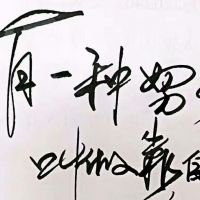 有一种努
叫做靠